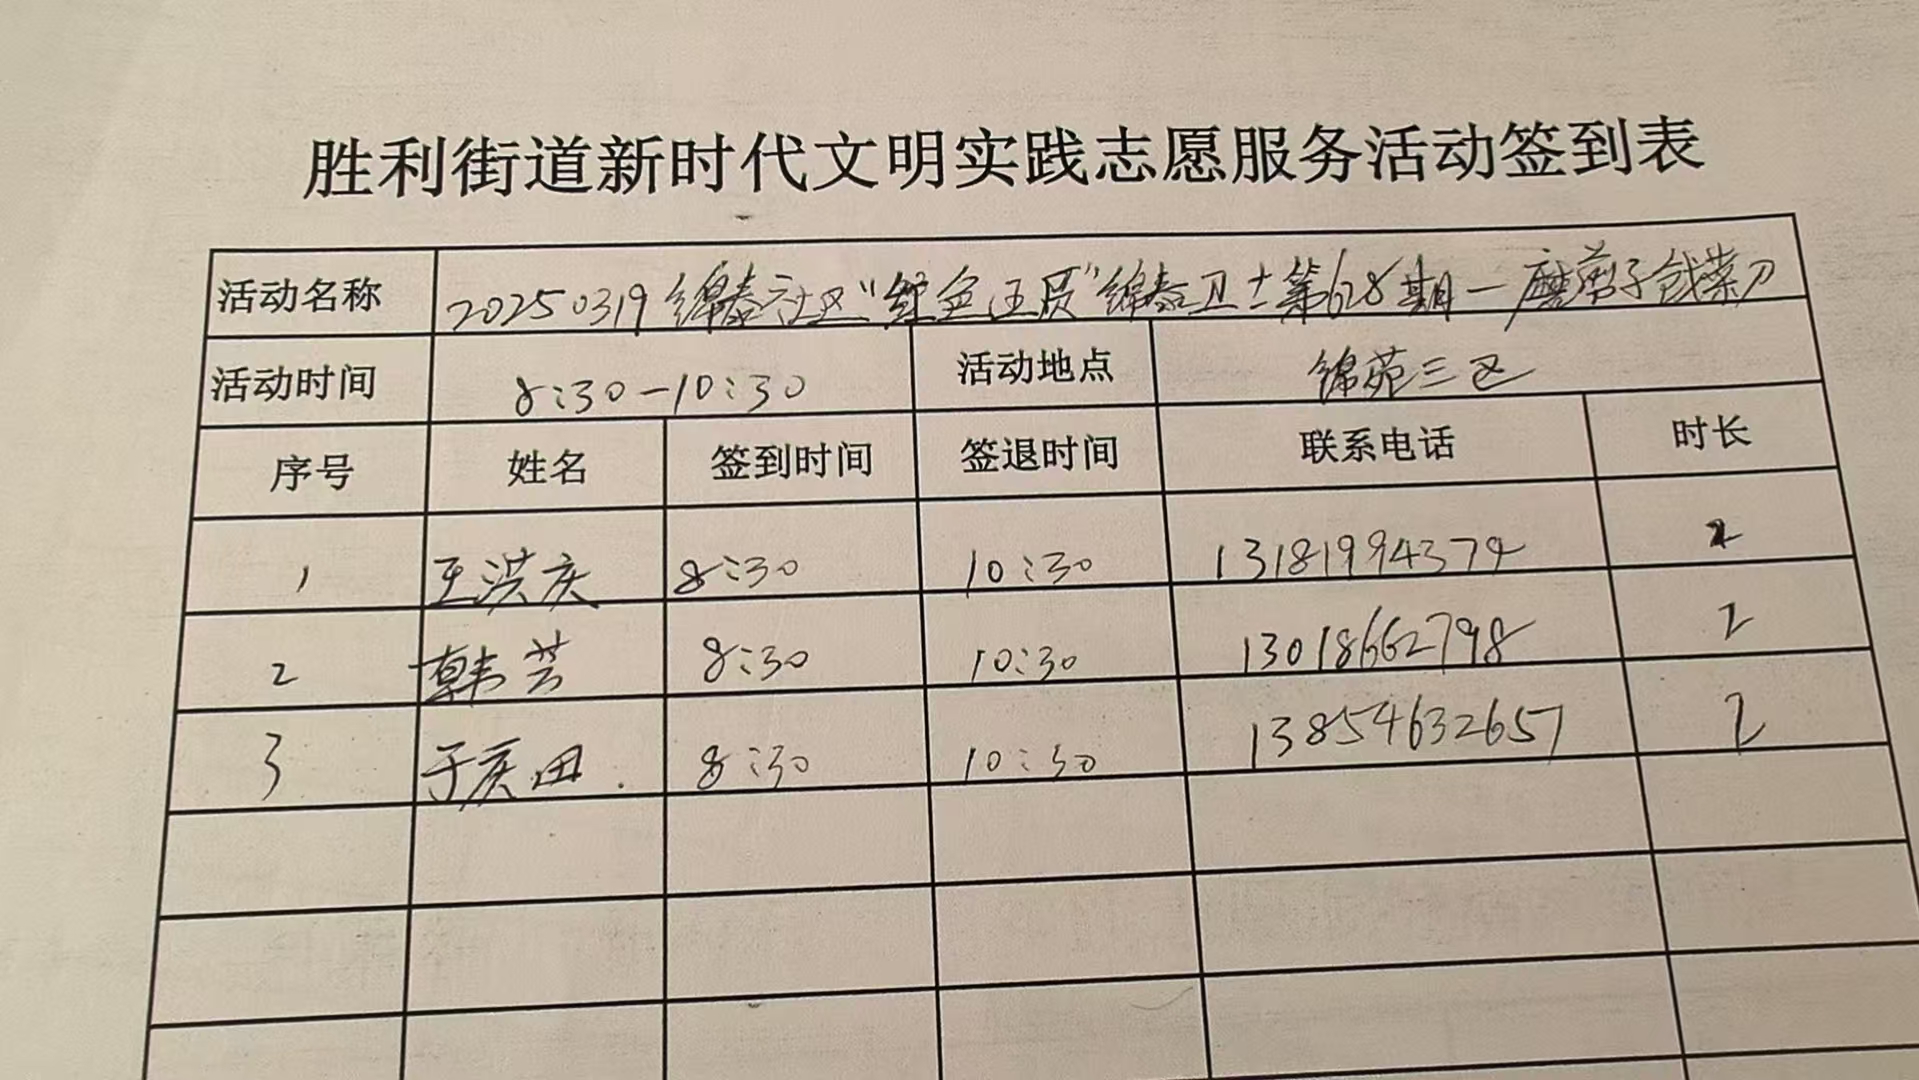 胜利街道新时代文明实践志愿服务活动签到表
活动名称 20250319锦泰社区“红色正员”锦泰卫士第628期一磨剪子戗菜刀
活动时间 8:30-10:30 活动地点 锦苑三区
序号 姓名 签到时间 签退时间 联系电话 时长
1 王洪庆 8:30 10:30 13181994379 2
2 韩芸 8:30 10:30 13018662798 2
3 于庆田. 8:30 10:30 13854632657 2